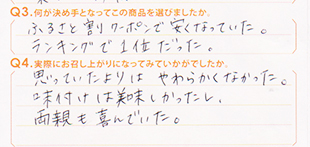 Q3.何が決め手となってこの商品を選びましたか。
ふるさと割クーポンで安くなっていた。
ランキングで1位だった。
Q4.実際にお召し上がりになってみていかがでしたか。
思っていたよりは やわらかくなかった。
味付けは美味しかったし、
両親も喜んでいた。